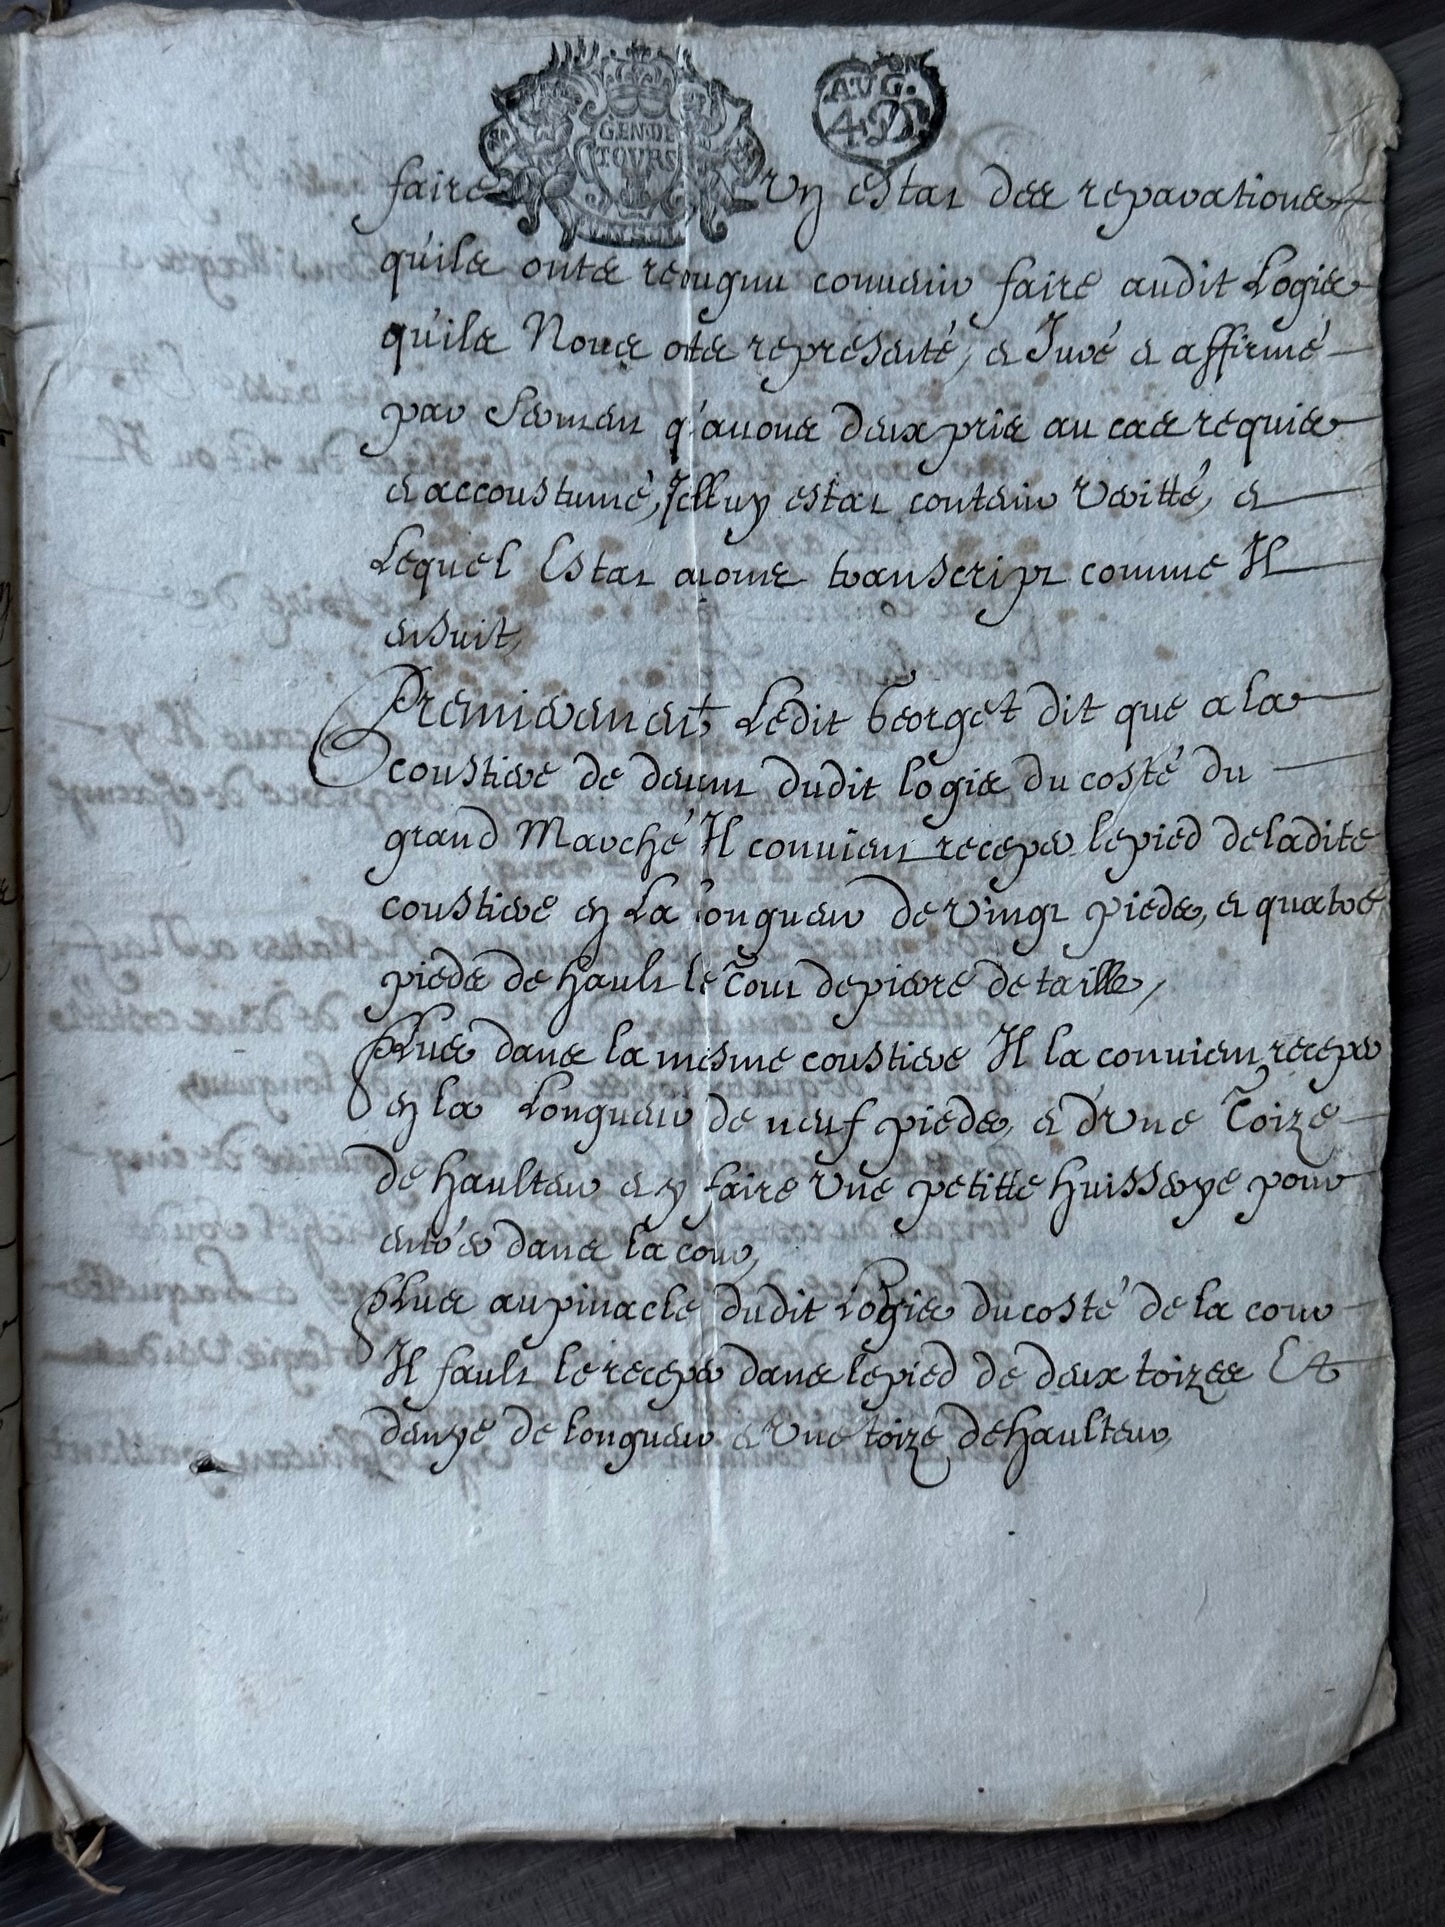 GEN. DE
TOURS
AUG.ON
4 D.
faire Un estat des reparations
qu'ils onts recougnu convenir faire audit Logis
qu'ils Nous ots representé, et Juré et affirmé
par serment q'avons d'eux pris au cas requis
et accoustumé, Jcelluy estat contenir Veritté, et
Lequel Estat avons transcript comme Il
ensuit,
Premierement Ledit Georget dit que a la
coustiere de devant dudit logis du costé du
grand Marché Il convient receper le pied de ladite
coustiere en La longueur de Vingt pieds, et quatre
pieds de hault le Tout de pierre de taille,
Plus dans la mesme coustiere Il la convient receper
en la Longueur de neuf pieds, et d'Une Toize
de haulteur et y faire Une petitte huisserye pour
entrer dans la cour,
Plus au pinacle dudit Logis du costé de la cour
Il fault le receper dans le pied de deux toizes Et
demye de longueur et Une toize de haulteur,